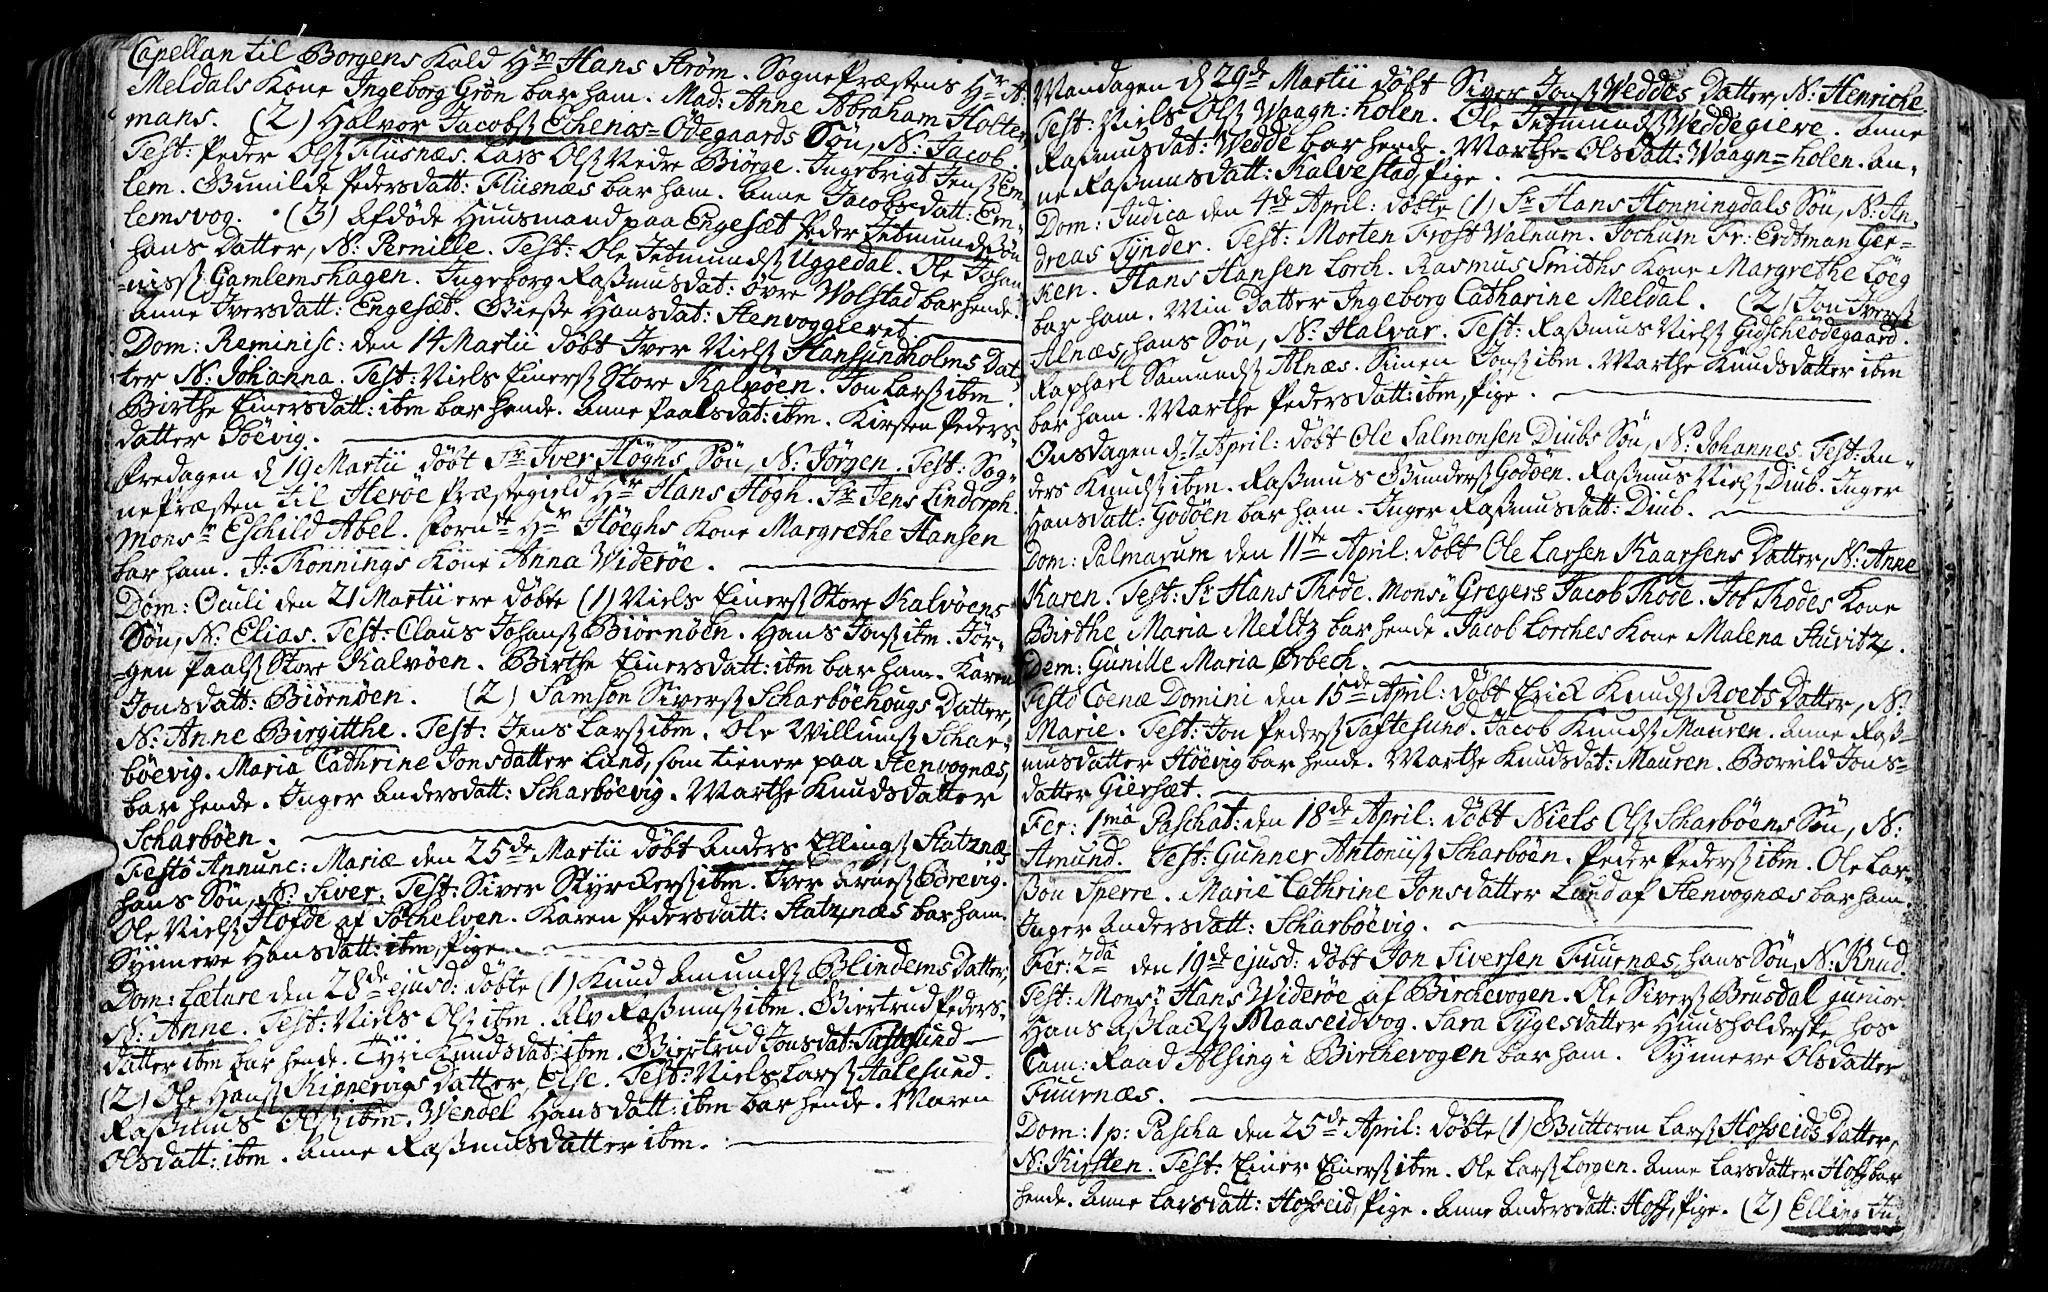 Capellan til Borgens Kald Hr Hans Strøm. SognePræstens Hr A.
Meldals Kone Ingeborg Grøn bar ham. Mad: Anne Abraham Holter-
mans. (2) Halvor Jacobsß Echenæs=Ödegaards Søn, N: Jacob.
Test: Peder Olsß Fliisnæs. Lars Olsß Nedre Biörge. Ingebrigt Jensß Em-
lem. Gunilde Pedersdatt: Fliisnæs bar ham. Anne Jacobsdatt: Em-
lemsvog. (3) Afdöde Huusmand paa Engesæt Peder Jetmundsß Søn
hans Datter, N: Pernille. Test: Ole Jetmundsß Uggedal. Ole Johan-
-nisß Gamlemshagen. Ingeborg Raßmusdat: övre Wolstad bar hende.
Anne Iversdatt: Engesæt. Giesße Hansdat: Stenvoggieret
Dom: Reminisc: den 14 Martii döbt Iver Nielsß Hansundholms Dat-
ter N: Johanna. Test: Niels Einersß Store Kalvöen. Jon Larsß ibm.
Birthe Einersdatt: ibm bar hende. Anne Paalsdat: ibm. Kirsten Peders-
datter Söevig.
Fredagen d 19 Martii döbt Sr Iver Höghs Søn, N: Jörgen. Test: Sog-
nePræsten til Heröe Præstegield Hr Hans Högh. Sr Jens Lindorph.
Monsr Eschild Abel. Fornte Hr Höeghs Kone Margrethe Hansen
bar ham. J: Rönnings Kone Anna Wideröe.
Dom: Oculi den 21 Martii ere döbte (1) Niels Einersß Store Kalvöens
Søn, N: Elias. Test: Claus Johansß Biörnöen. Hans Jonsß ibm. Jör-
-gen Paalsß Store Kalvöen. Birthe Einersdatt: ibm bar ham. Karen
Jonsdatt: Biörnöen. (2) Samson Siversß Scharböehougs Datter,
N: Anne Birgitthe. Test: Jens Larsß ibm. Ole Willumsß Schar-
böevig. Maria Cathrine Jonsdatter Lund, som tiener paa Stenvognæs,
bar hende. Inger Andersdatt: Scharböevig. Marthe Knudsdatter
Scharböen.
Festo Annunc: Mariæ den 25de Martii döbt Anders Ellingsß Statznæs
hans Søn, N: Siver. Test: Siver Styrckersß ibm. Iver Arnesß Börevig.
Ole Nielsß Hofde af Sökelven. Karen Pedersdatt: Statznæs bar ham.
Synneve Hansdatt: ibm, Pige.
Dom: Lætare den 28de ejusd: döbte (1) Knud Amundsß Blindems Datter,
N: Anne. Test: Niels Olsß ibm. Alv Raßmusß ibm. Giertrud Peders-
datter ibm bar hende. Tyri Knudsdat: ibm. Giertrud Jonsdat: Taftesund
(2) Ole Hansß Kippervigs Datter, Else. Test: Niels Larsß Aalesund.
Raßmus Olsß ibm. Wendel Hansdatt: ibm bar hende. Maren
Olsdatt: ibm. Anne Raßmusdatter ibm.
Mandagen d 29de Martii döbt Siver Jonsß Weddes Datter, N: Henriche
Test: Niels Olsß Waagn: holen. Ole Jetmundsß Weddegiere. Anne
Raßmusdat: Wedde bar hende. Marthe Olsdatt: Waagn=holen. An-
ne Raßmusdatt: Kalvestad, Pige.
Dom: Judica den 4de April: döbte (1) Sr Hans Honningdals Søn, N: An-
dreas Tÿnder. Test: Morten Frost Walnum. Jochum Fr: Erdtman Ger=
ken. Hans Hansen Lorch. Rasmus Smiths Kone Margrethe Löeg
bar ham. Min Datter Ingeborg Catharine Meldal. (2) Jon Iversß
Alnæs, hans Søn, N: Halvar. Test: Raßmus Nielsß Gidscheödegaard.
Raphael Samundsß Alnæs. Simen Jonsß ibm. Marthe Knudsdatter ibm
bar ham. Marthe Pedersdatt: ibm, Pige.
Onsdagen d. 7 April: döbt Ole Salmonsen Diubs Søn, N: Johannes. Test: An-
ders Knudsß ibm. Raßmus Gundersß Godöen. Raßmus Nielsß Diub. Inger
Hansdatt: Godöen bar ham. Inger Raßmusdatt: Diub.
Dom: Palmarum den 11te April: döbt Ole Larsen Kaarsens Datter, N: Anne
Karen. Test: Sr Hans Thode. Monsr Gregers Jacob Thode. Job Thodes Kone
Birthe Maria Meiltz bar hende. Jacob Lorches Kone Malena Stuvitz.
Dem: Gunille Maria Ørbech.
Festo Coenæ Domini den 15de April: döbt Erick Knudsß Roets Datter, N:
Marie. Test: Jon Pedersß Taftesund. Jacob Knudsß Mauren. Anne Raß-
musdatter Höevig bar hende. Marthe Knudsdat: Mauren. Borrild Jons-
datter Giersæt.
Fer: 1ma Paschat: den 18de April: döbt Niels Olsß Scharböens Søn, N:
Amund. Test: Gunner Antoniisß Scharböen. Peder Pedersß ibm. Ole Lar-
son Sperre. Marie Cathrine Jonsdatter Lund af Stenvognæs bar ham.
Inger Andersdatt: Scharböevig.
Fer: 2da den 19de ejusd: döbt Jon Siversen Fuurnæs, hans Søn, N: Knud.
Test: Monsr Hans Wideröe af Birchevogen. Ole Siversß Brusdal junior.
Hans Aslacksß Maaseidvog. Sara Tÿgesdatter Huusholderske hos
Cam: Raad Alsing i Birchevogen bar ham. Synneve Olsdatter
Fuurnæs.
Dom: 1 p: Pascha den 25de April: döbte (1) Guttorm Larsß Hofseids Datter,
N: Kirsten. Test: Einer Einersß ibm. Ole Larsß Lorgen. Anne Larsdatter Hoff bar
hende. Anne Larsdatt: Hofseid, Pige. Anne Andersdatt: Hoff, Pige. (2) Elling Ju-